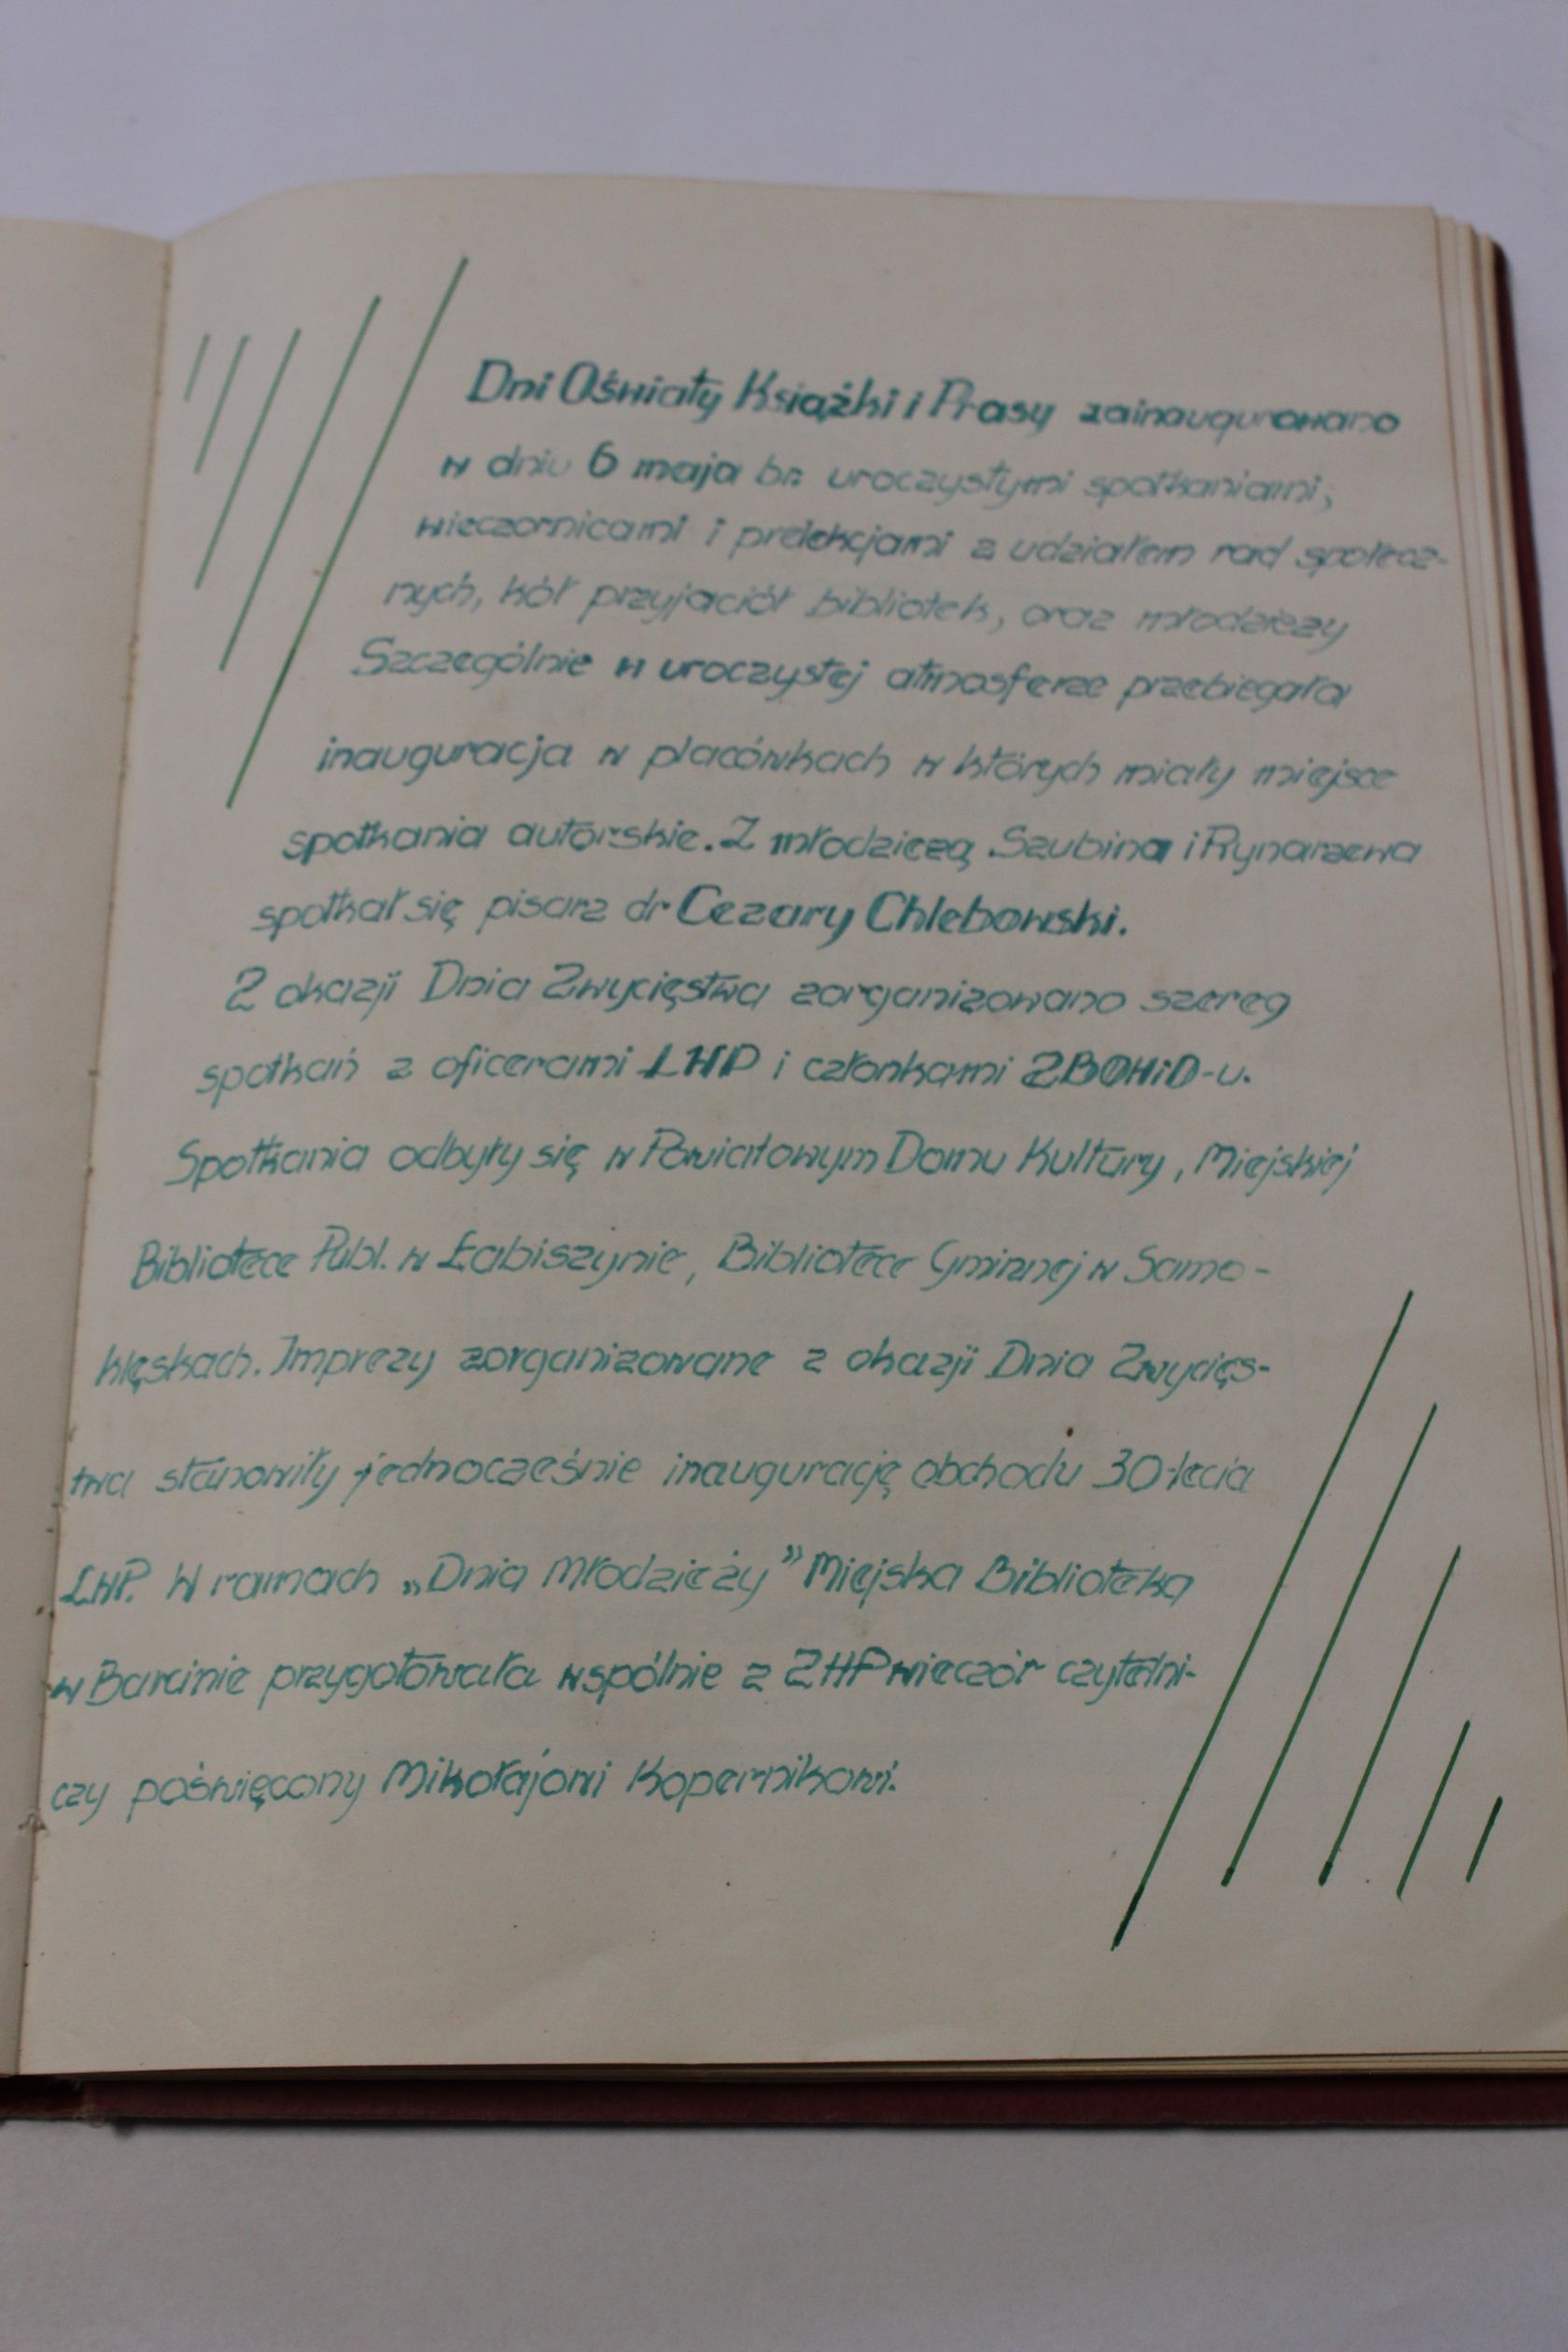 Dni Oświaty Książki i Prasy zainaugurowano
w dniu 6 maja br. uroczystymi spotkaniami,
wieczornicami i prelekcjami z udziałem rad społecz-
nych, kół przyjaciół bibliotek, oraz młodzieży
Szczególnie w uroczystej atmosferze przebiegała
inauguracja w placówkach w których miały miejsce
spotkania autorskie. Z młodzieżą Szubina i Rynarzewa
spotkał się pisarz dr Cezary Chlebowski.
Z okazji Dnia Zwycięstwa zorganizowano szereg
spotkań z oficerami LWP i członkami ZBOWiD-u.
Spotkania odbyły się w Powiatowym Domu Kultury, Miejskiej
Bibliotece Publ. w Łabiszynie, Bibliotece Gminnej w Samo-
klęskach. Imprezy zorganizowane z okazji Dnia Zwycięs-
twa stanowiły jednocześnie inaugurację obchodu 30-lecia
LWP. W ramach „Dnia Młodzieży” Miejska Biblioteka
w Barcinie przygotowała wspólnie z ZHP wieczór czytelni-
czy poświęcony Mikołajowi Kopernikowi.